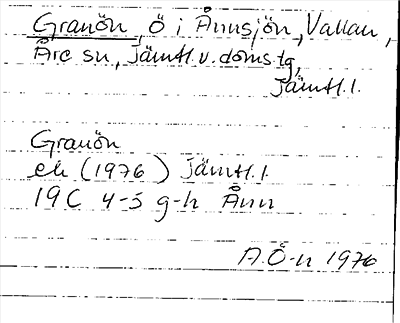 Granön, ö i Ånnsjön, Vallan,
Åre sn, Jämtl. v. doms.lg,
Jämtl. l.
Granön
ek (1976) Jämtl. l.
19C 4-5 g-h Ånn
A.Ö-n 1976